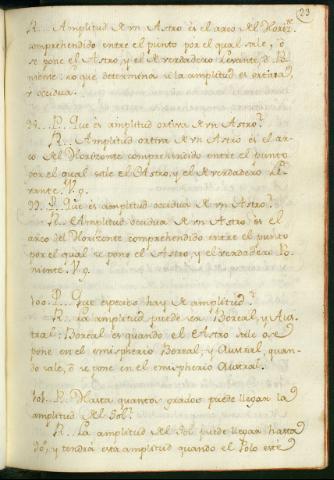 23
R... Amplitud de vn Astro es el arco del Horiz.te
comprehendido entre el punto por el qual sale, ò
se pone el Astro, y el verdadero Levante, ò Po-
niente: lo que determina si la amplitud es ortiva,
y occidua.
98... P... Que es amplitud ortiva de vn Astro?
R... Amplitud ortiva de vn Astro es el ar-
co del Horizonte comprehendido entre el punto
por el qual sale el Astro, y el verdadero Le-
vante. V. g.
99... P... Que es amplitud occidua de vn Astro?
R... Amplitud occidua de vn Astro es el
arco del Horizonte comprehendido entre el punto
por el qual se pone el Astro, y el verdadero Po-
niente. V. g.
100... P... Que especies hay de amplitud?
R... La amplitud puede ser Boreal, y Aus-
tral: Boreal es quando el Astro sale ò se
pone en el emispherio Boreal; y Austral, quan-
do sale, ò se pone en el emispherio Austral.
101... P... Hasta quantos grados puede llegar la
amplitud del Sol?
R... La amplitud del Sol puede llegar hasta
90, y tendrá esta amplitud quando el Polo esté